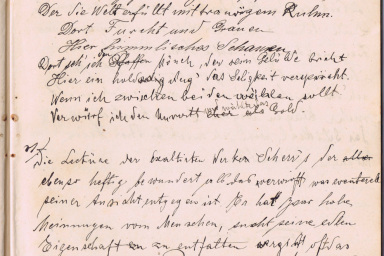 Der die Welt erfüllt mit traurigem Ruhm.
Dort Furcht und Grauen
Hier himmlisches Schauen
Dort seh ich den Mönch, der sein Gelübde bricht
Hier ein Aug' das Seligkeit verspricht.
Wenn ich zwischen beiden wählen sollt
Verwürf ich den als Gold.
Die Lectüre der exaltirten Scherr's der alles
ebenso heftig bewundert als das verwirft was eventuell
seiner Ansicht entgegen ist Er hat hohe
Meinungen vom Menschen, sucht seine edlen
Eigenschaften zu entfalten vergißt oft das